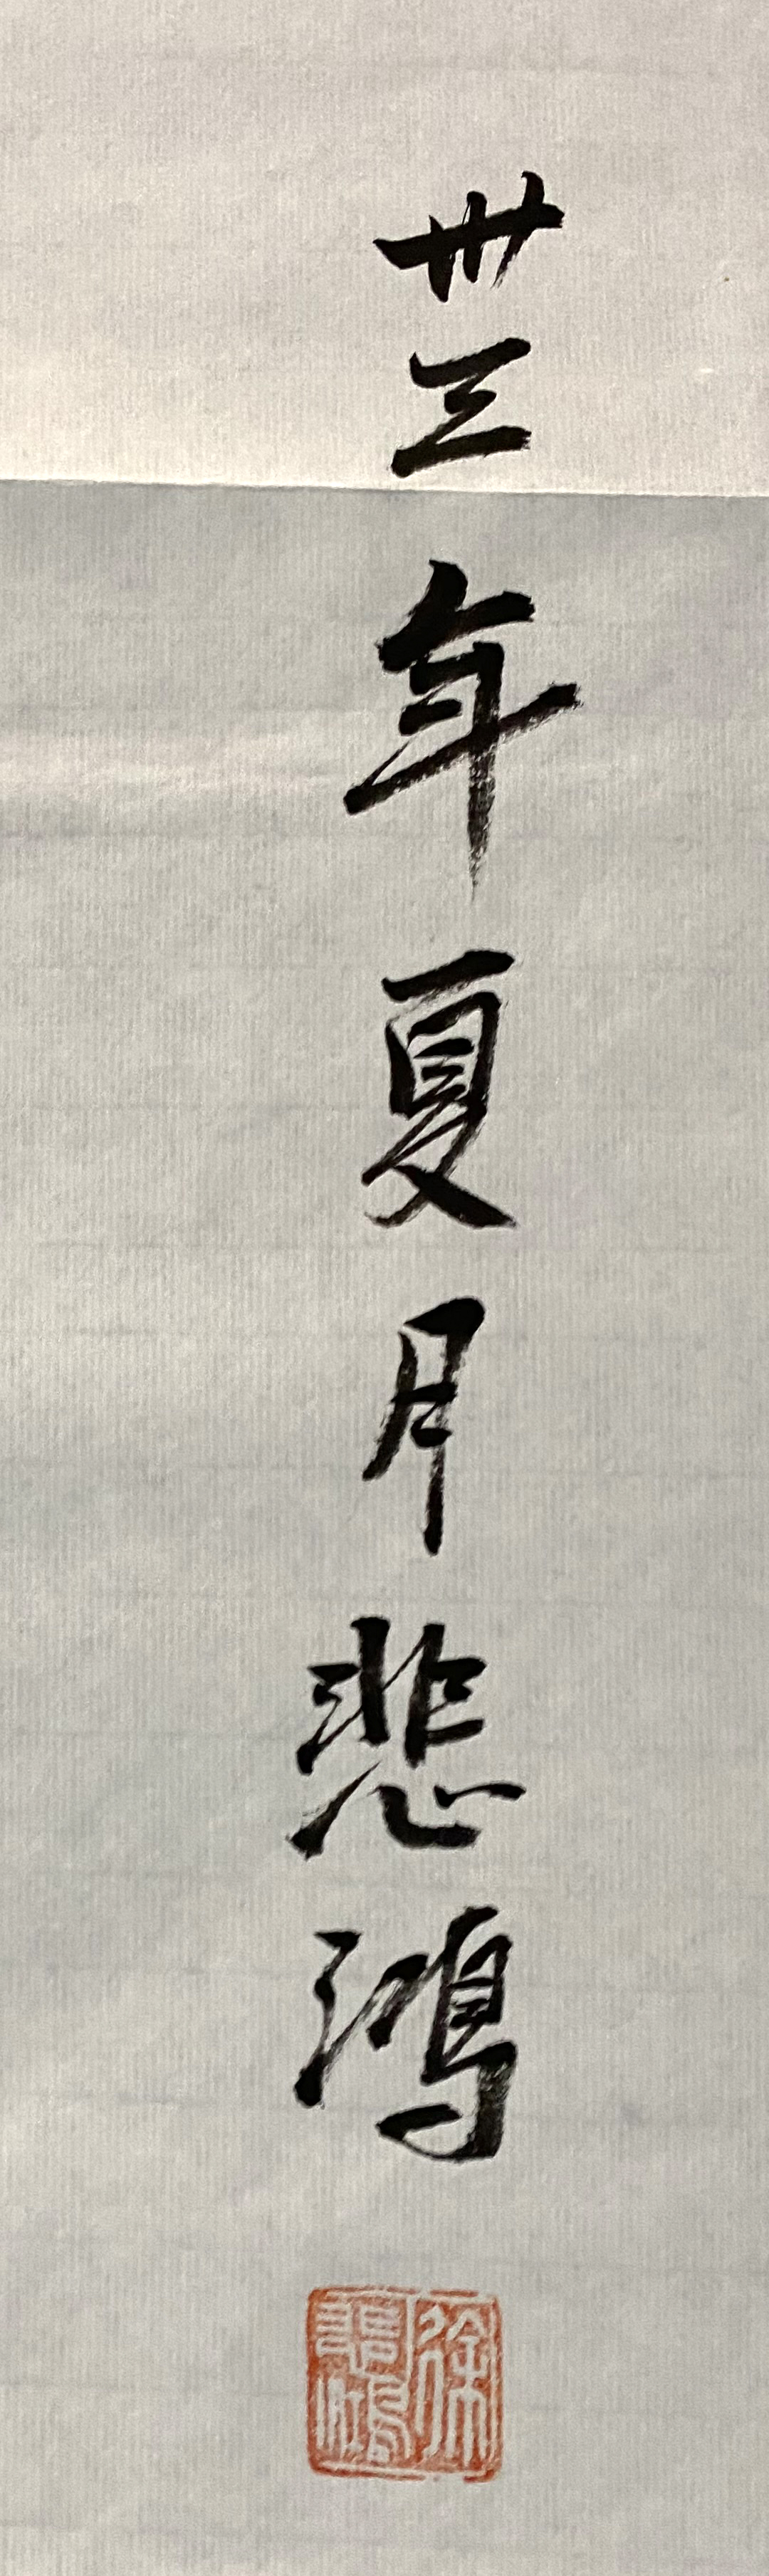 卅三年夏月悲鴻
徐悲鴻